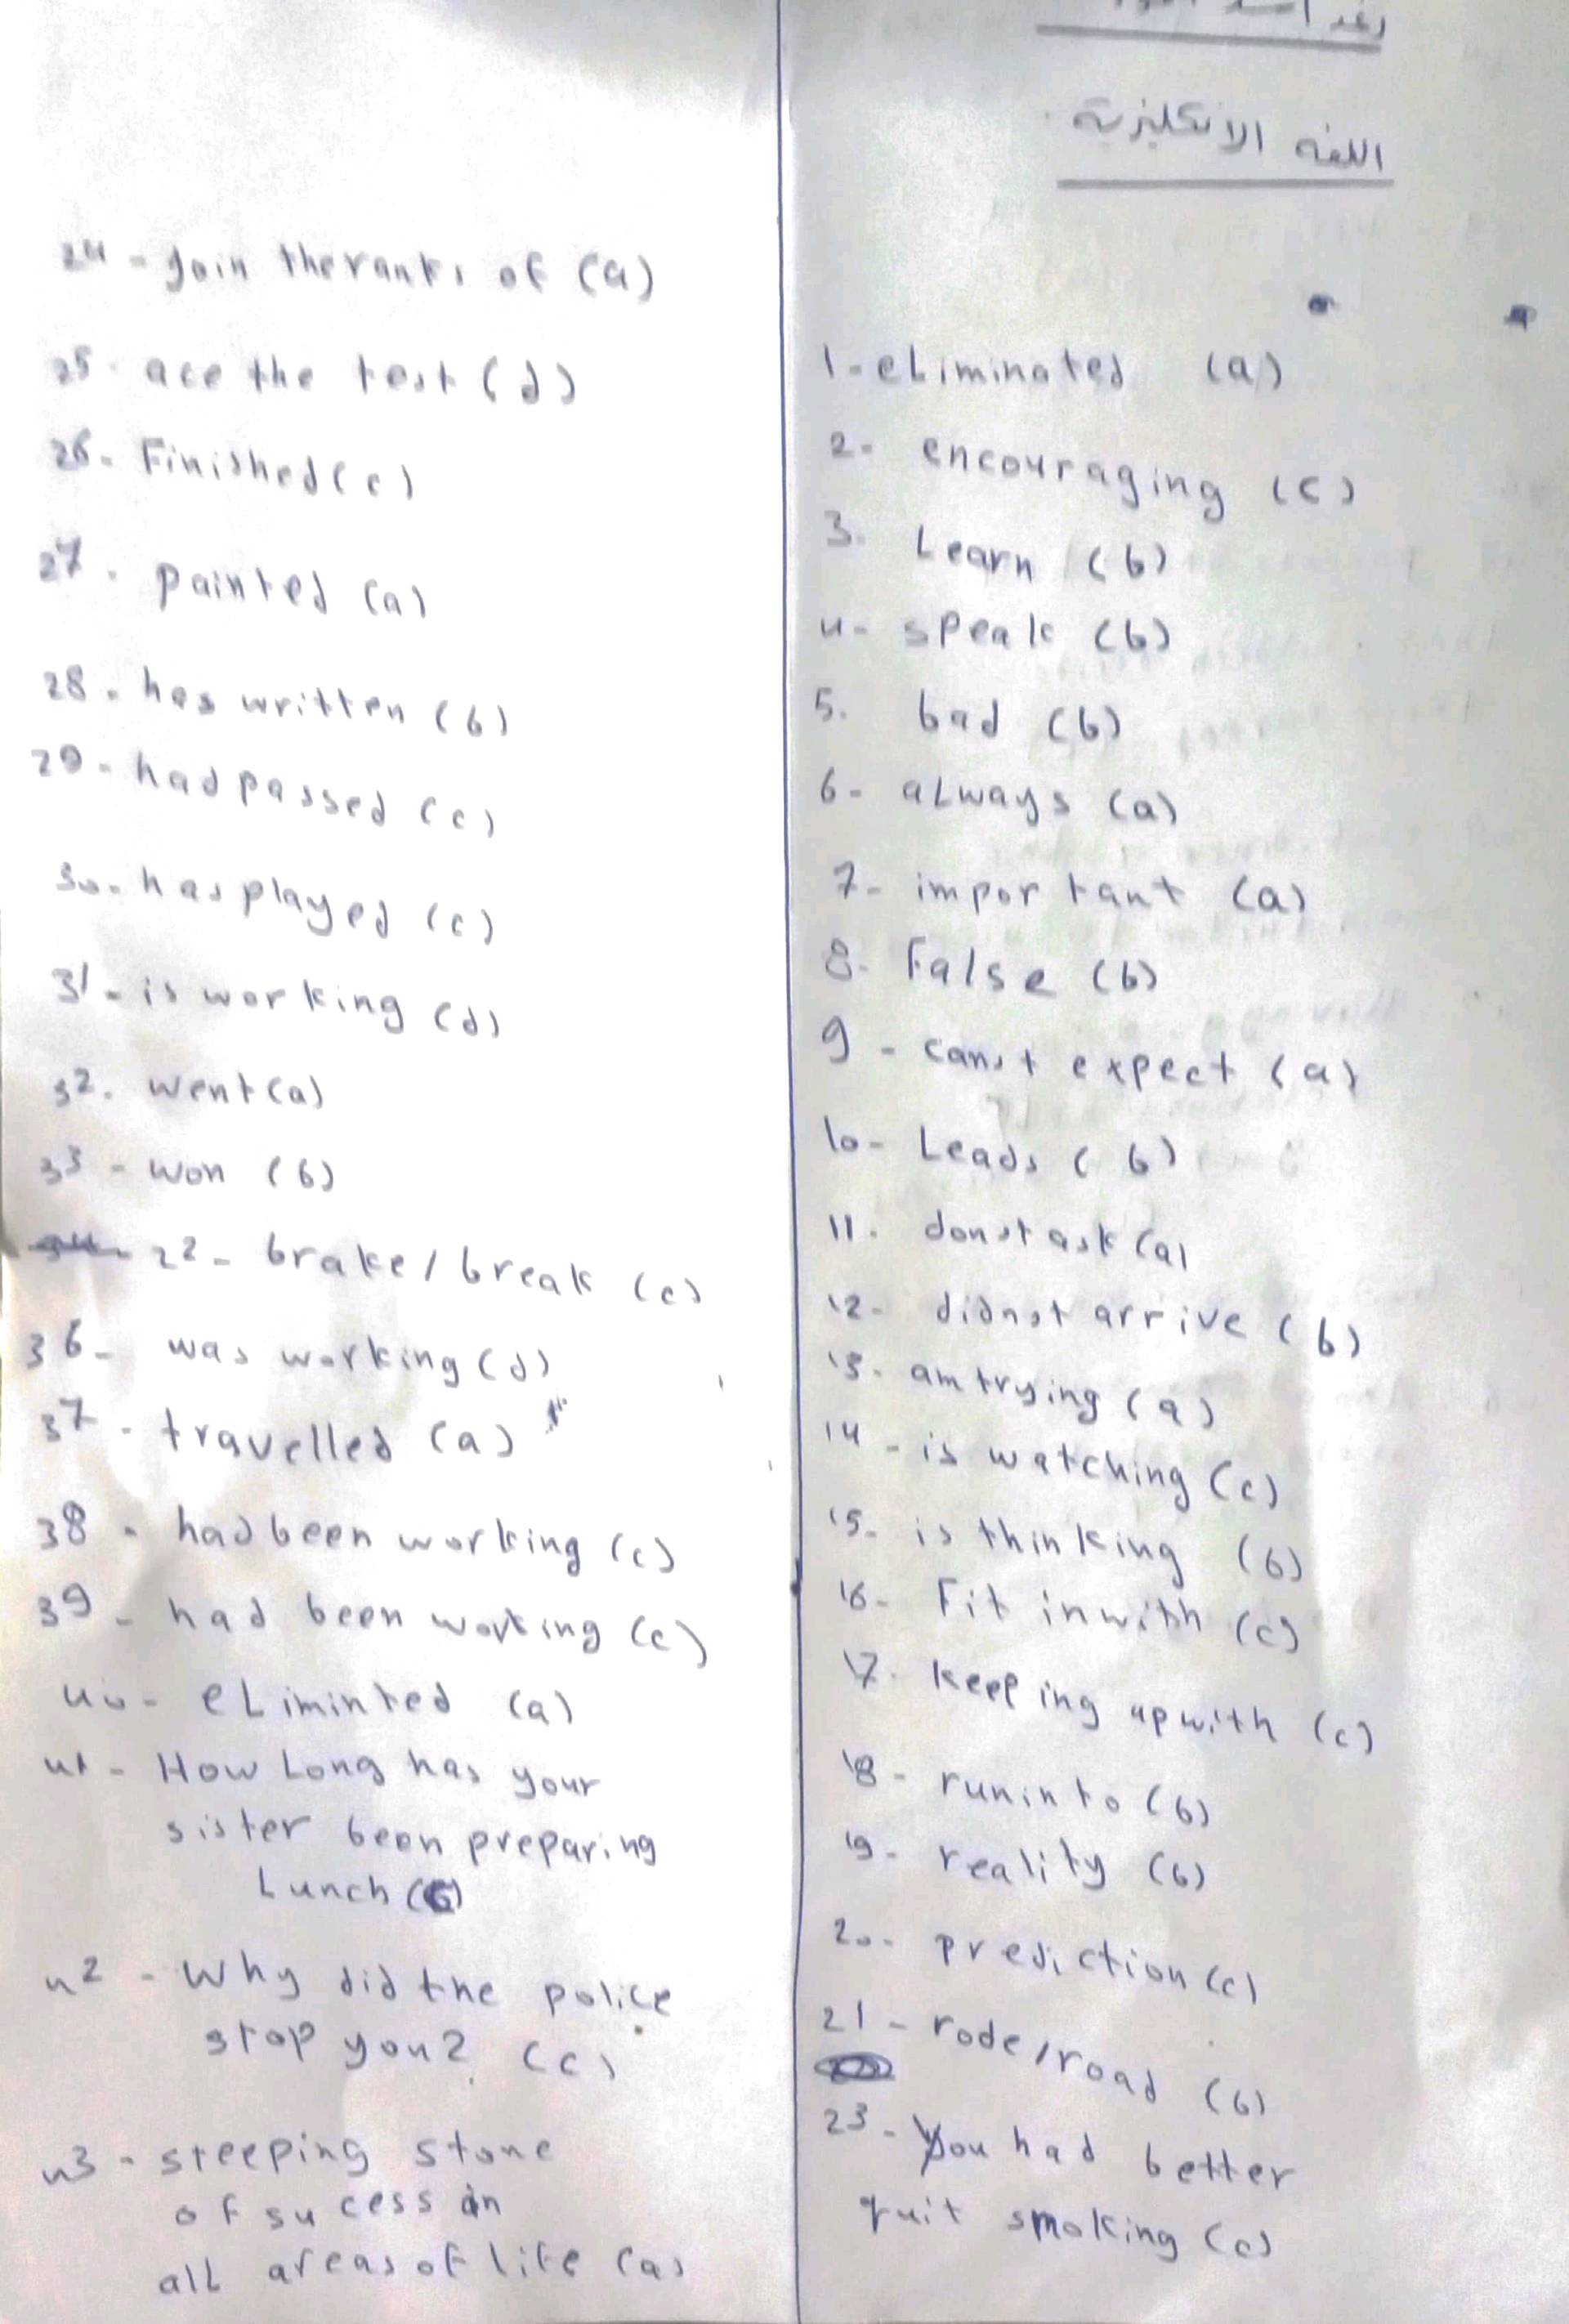 اللغه الانكليزية
1-eliminated (a)
2- encouraging (c)
3- Learn (b)
4- speak (b)
5. bad (b)
6- always (a)
7- important (a)
8- False (b)
9 - can't expect (a)
10- Leads (b)
11. don't ask (a)
12- didn't arrive (b)
13- am trying (a)
14 - is watching (c)
15- is thinking (b)
16- Fit in with (c)
17. keeping up with (c)
18- run into (b)
19- reality (b)
20- prediction (c)
21 - rode/road (b)
23- You had better
quit smoking (c)
24 - Join the ranks of (a)
25- ace the test (d)
26- Finished (c)
27. painted (a)
28- has written (b)
29- had passed (c)
30- has played (c)
31- is working (d)
32. went (a)
33 - won (b)
22- brake/break (c)
36- was working (d)
37- travelled (a)
38 - had been working (c)
39 - had been working (c)
40- eliminted (a)
41- How Long has your
sister been preparing
Lunch
42 - Why did the police
stop you? (c)
43- steeping stone
of sucess in
all areas of life (a)